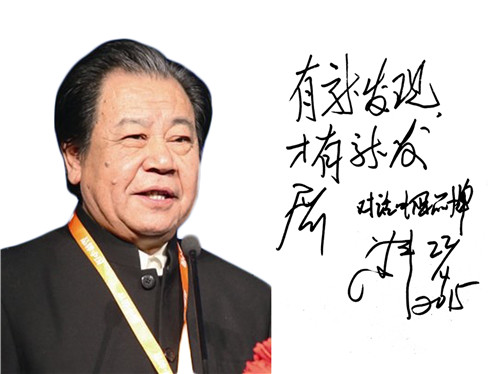 有新发现,
才有新发
展
对话中国品牌
2015